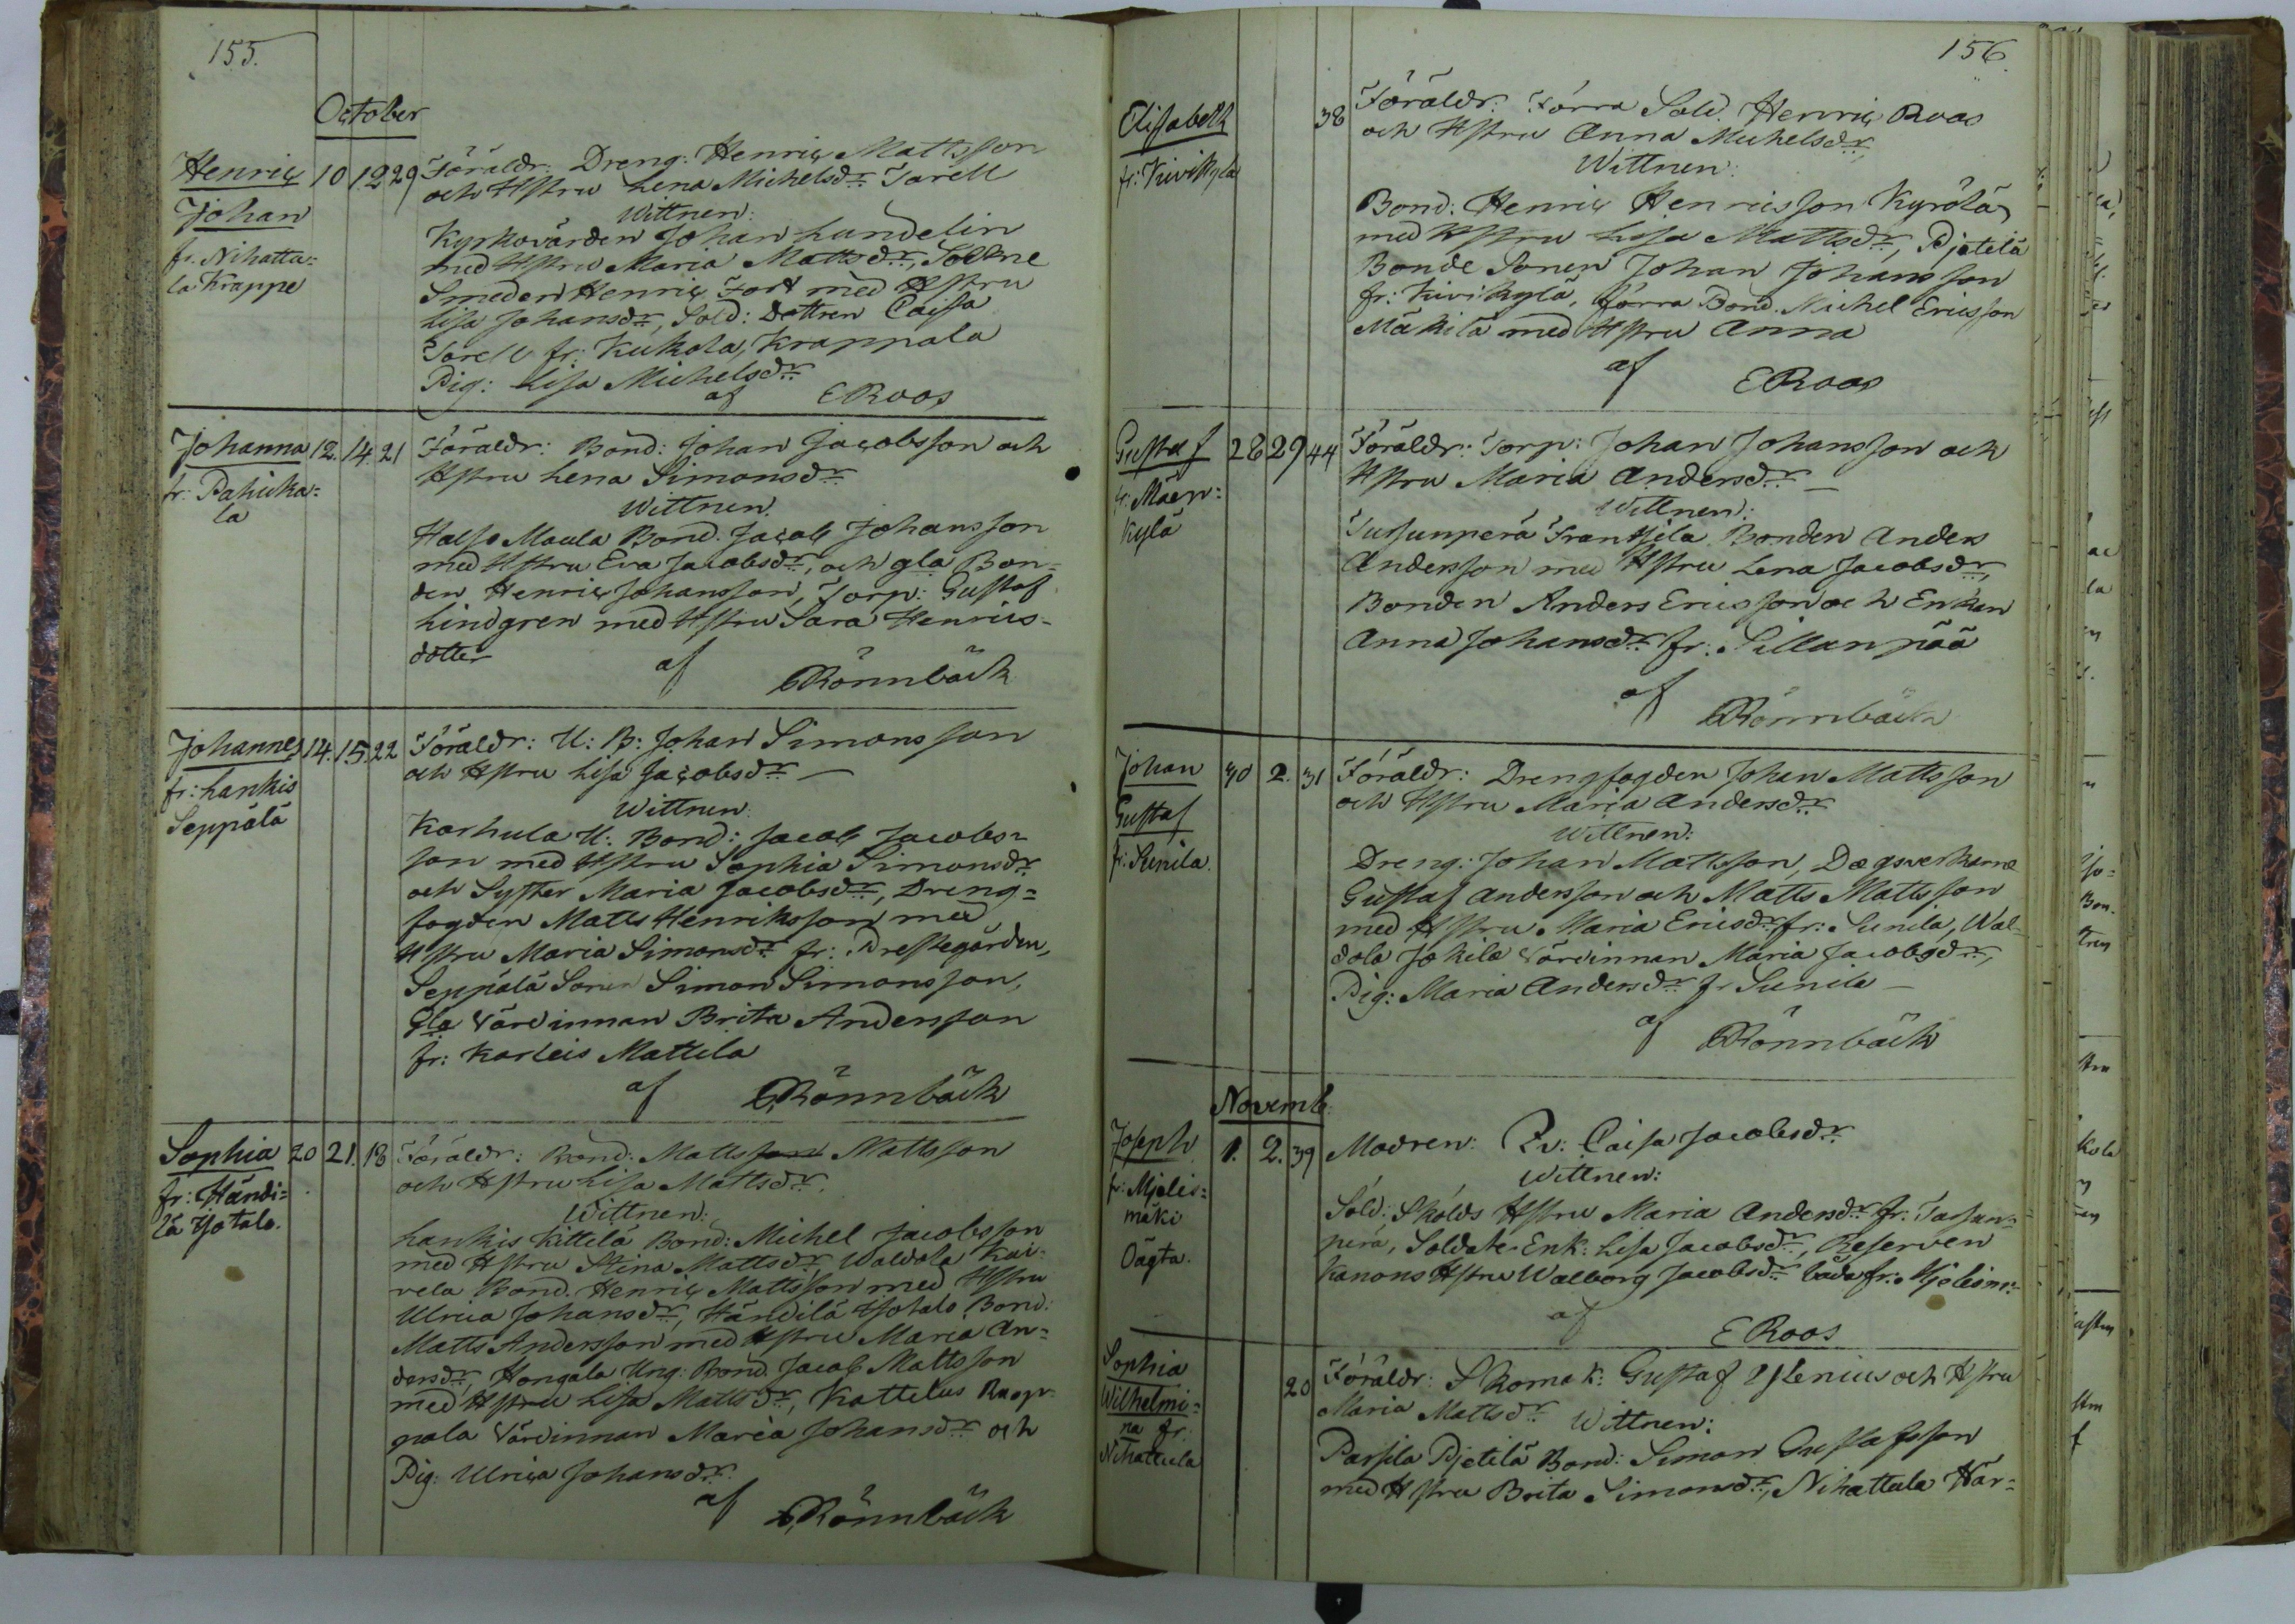 155.
October
Henric 10 12 29 Föräldr: Dreng: Henric Mattsson
Johan och Hstru Lena Michelsdr Torell
fr. Nihatta= Wittnen:
la Krappe Kyrkovärden Johan Lundelin
med Hstru Maria Mattsdr, Sockne
Smeden Henric Fort med Hstru
Lisa Johansdr, Sold: Dottren Caisa
Torell fr: Kukola, Krappala
Pig: Lisa Michelsdr
af ERoos
Johanna 12. 14. 21 Föräldr: Bond: Johan Jacobsson och
fr: Pahicka= Hstru Lena Simonsdr
la Wittnen.
Halso Maula Bond. Jacob Johansson
med Hstru Eva Jacobsdr, och gla Bon=
den Henric Johansson, Torp: Gustaf
Lindgren med Hstru Sara Henrics-
dotter af CRönnbäck
Johannes 14. 15. 22 Föräldr: U: B: Johan Simonsson
fr: Lankis och Hstru Lisa Jacobsdr —
Seppälä Wittnen
Karhula U: Bond: Jacob Jacobs=
son med Hstru Sophia Simonsdr
och Syster Maria Jacobsdr, Dreng=
fogden Matts Henriksson med
Hstru Maria Simonsdr fr: Prestegården,
Seppälä Sonen Simon Simonsson,
Gla Värdinnan Brita Andersson
fr: Karleis Mattila
af CRönnbäck
Sophia 20 21. 18 Föräldr: Bond: Matts Mattsson
fr: Händi= och Hstru Lisa Mattsdr.
lä Isotalo. Wittnen:
Lankis Kittilä Bond: Michel Jacobsson
med Hstru Stina Mattsdr, Waldola Kai=
vela Bond. Henric Mattsson med Hstru
Ulrica Johansdr, Händilä Isotalo Bond:
Matts Andersson med Hstru Maria An=
dersdr, Hongala Ung: Bond. Jacob Mattsson
med Hstru Lisa Mattsdr, Kattelus
pala Värdinnan Maria Johansdr och
Pig: Ulrica Johansdr
af CRönnbäck
156.
Elisabeth 38 Föräldr: Förra Sold. Henric Roos
fr: Kivikylä och Hstru Anna Michelsdr,
Wittnen:
Bond: Henric Henricsson Kyrölä
med Hstru Lisa Mattsdr, Pietilä
Bonde Sonen Johan Johansson
fr: Kivikylä, förra Bond. Michel Ericsson
Mäkilä med Hstru Anna
af ERoos
Gustaf 28 29 44 Föräldr: Torp: Johan Johansson och
fr: Mäen= Hstru Maria Andersdr —
kylä Wittnen:
Tursunperä Frantsila Bonden Anders
Andersson med Hstru Lena Jacobsdr,
Bonden Anders Ericsson och Enkan
Anna Johansdr fr: Sillanpää
af CRönnbäck
Johan 30 2. 31 Föräldr: Drengfogden Johan Mattsson
Gustaf och Hstru Maria Andersdr
fr: Sunila. Wittnen:
Dreng: Johan Mattsson, Dagsverkarne
Gustaf Andersson och Matts Mattsson
med Hstru Maria Ericsdr fr: Sunila, Wal=
dola Jokila Värdinnan Maria Jacobsdr,
Pig: Maria Andersdr fr Sunila —
af CRönnbäck
Novemb.
Joseph 1. 2. 39 Modren: Caisa Jacobsdr
fr: Mjölis= Wittnen:
mäki Sold: Skölds Hstru Maria Andersdr fr: Tursun=
Oägta. perä, Soldate-Enk: Lisa Jacobsdr, Reserven
Kanons Hstru Walborg Jacobsdr båda fr: Mjölism:
af ERoos
Sophia 20 Föräldr: Skomak: Gustaf Ylenius och Hstru
Wilhelmi= Maria Mattsdr Wittnen:
na fr: Parsila Pjetilä Bond: Simon Gustafsson
Nihattula med Hstru Brita Simonsdr, Nihattula Här=